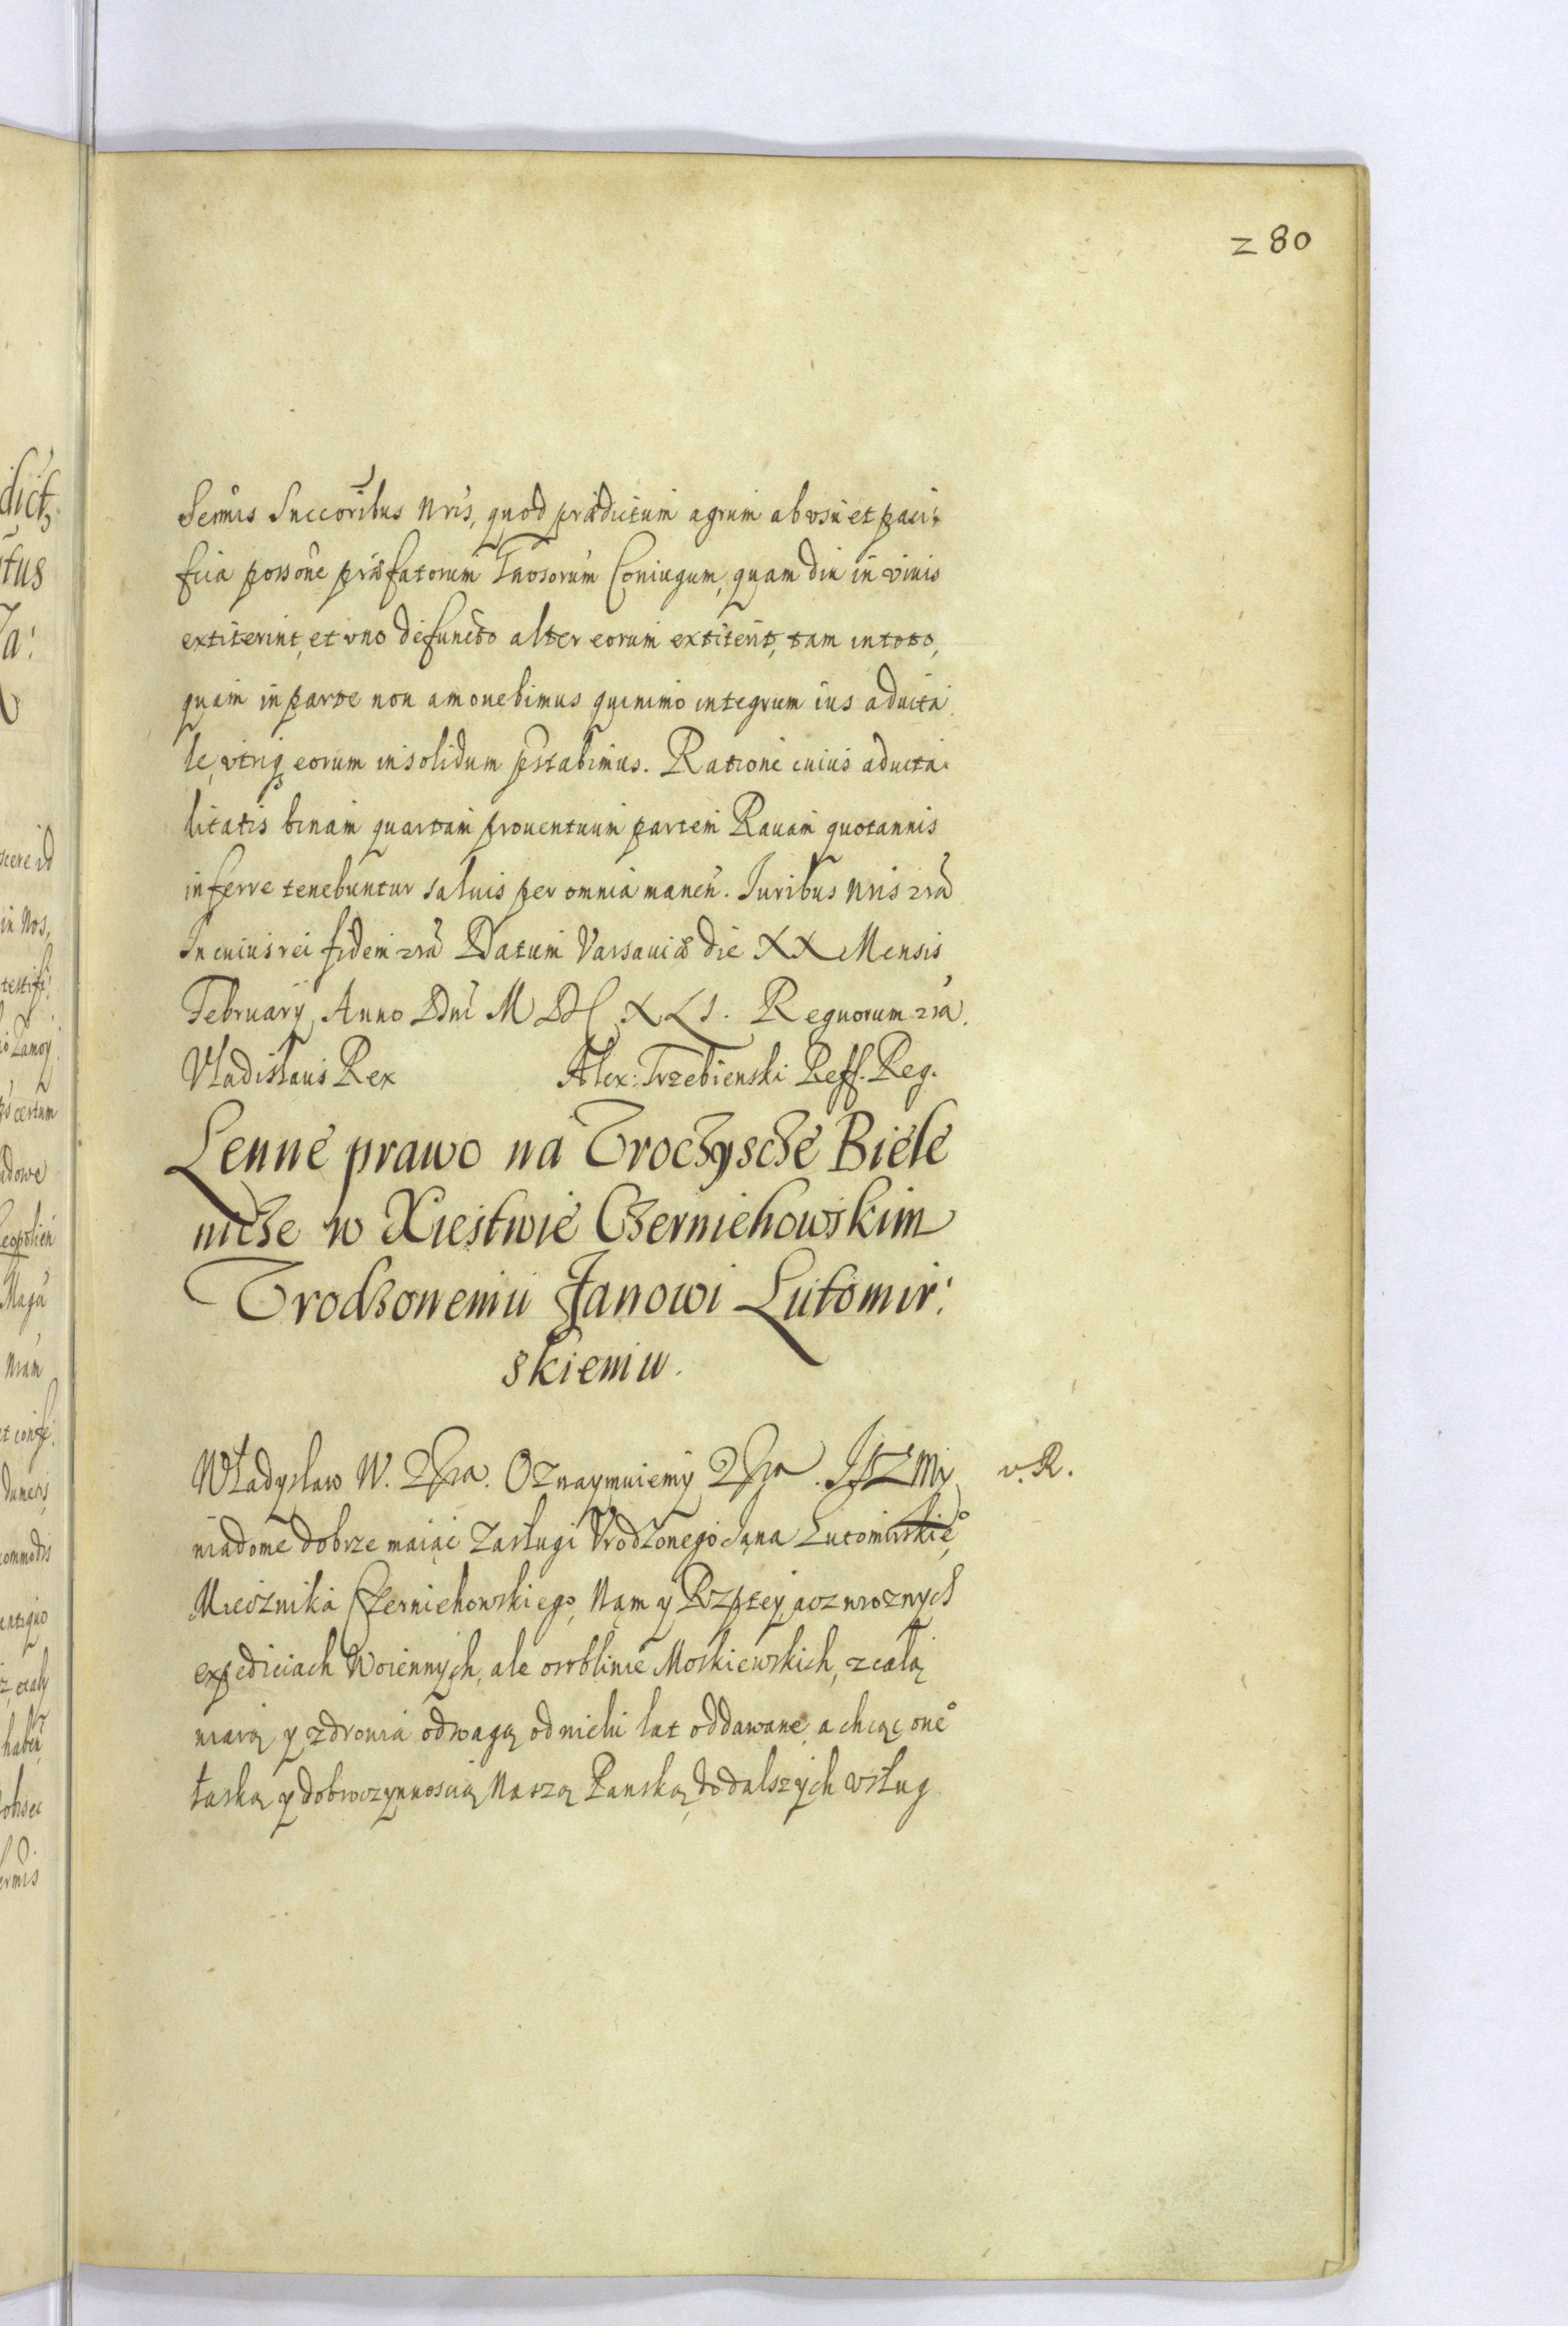 280
Sermis Succoribus Nris, quod prædictum agrum ab vsu et paci-
fica possone præfatorum Gnosorum Coniugum, quam diu in viuis
extiterint, et vno defuncto alter eorum extiterit, tam in toto,
quam in parte non amouebimus quinimo integrum ius aduita
le, vtriq eorum insolidum pstabimus. Ratione cuius aduita-
litatis binam quartam prouentuum partem Rauam quotannis
inferre tenebuntur saluis per omnia manen. Iuribus Nris zra
In cuius rei fidem zra Datum Varsauiæ die XX Mensis
February Anno Dni MDCXLI. Regnorum zra.
Vladislaus Rex Alex: Trzebienski Reff. Reg.
Lenne prawo na Vroczysche Biele
nicze w Xiestwie Czerniehowskim
Vrodzonemu Janowi Lutomir:
skiemu.
Władysław W. zra. Oznaymuiemy zra. Isz My v. R.
wiadome dobrze maiąc zasługi Vrodzonego Jana Lutomirskieo
Miecznika Czerniehowskiego, Nam y Rzptey, a oz wroznych
expediciach Woiennych, ale osobliwie Moskiewskich, z całą
wiarą y zdrowia odwagą od wielu lat oddawane, a chcąc one
łaską y dobroczynnoscią Naszą Panską do dalszych vsług